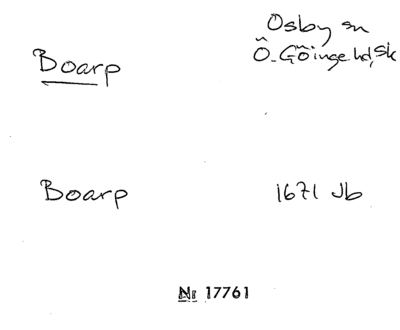 Boarp
Osby sn
Ö. Göinge hd, Sk
Boarp
1671 Jb
Nr 17761